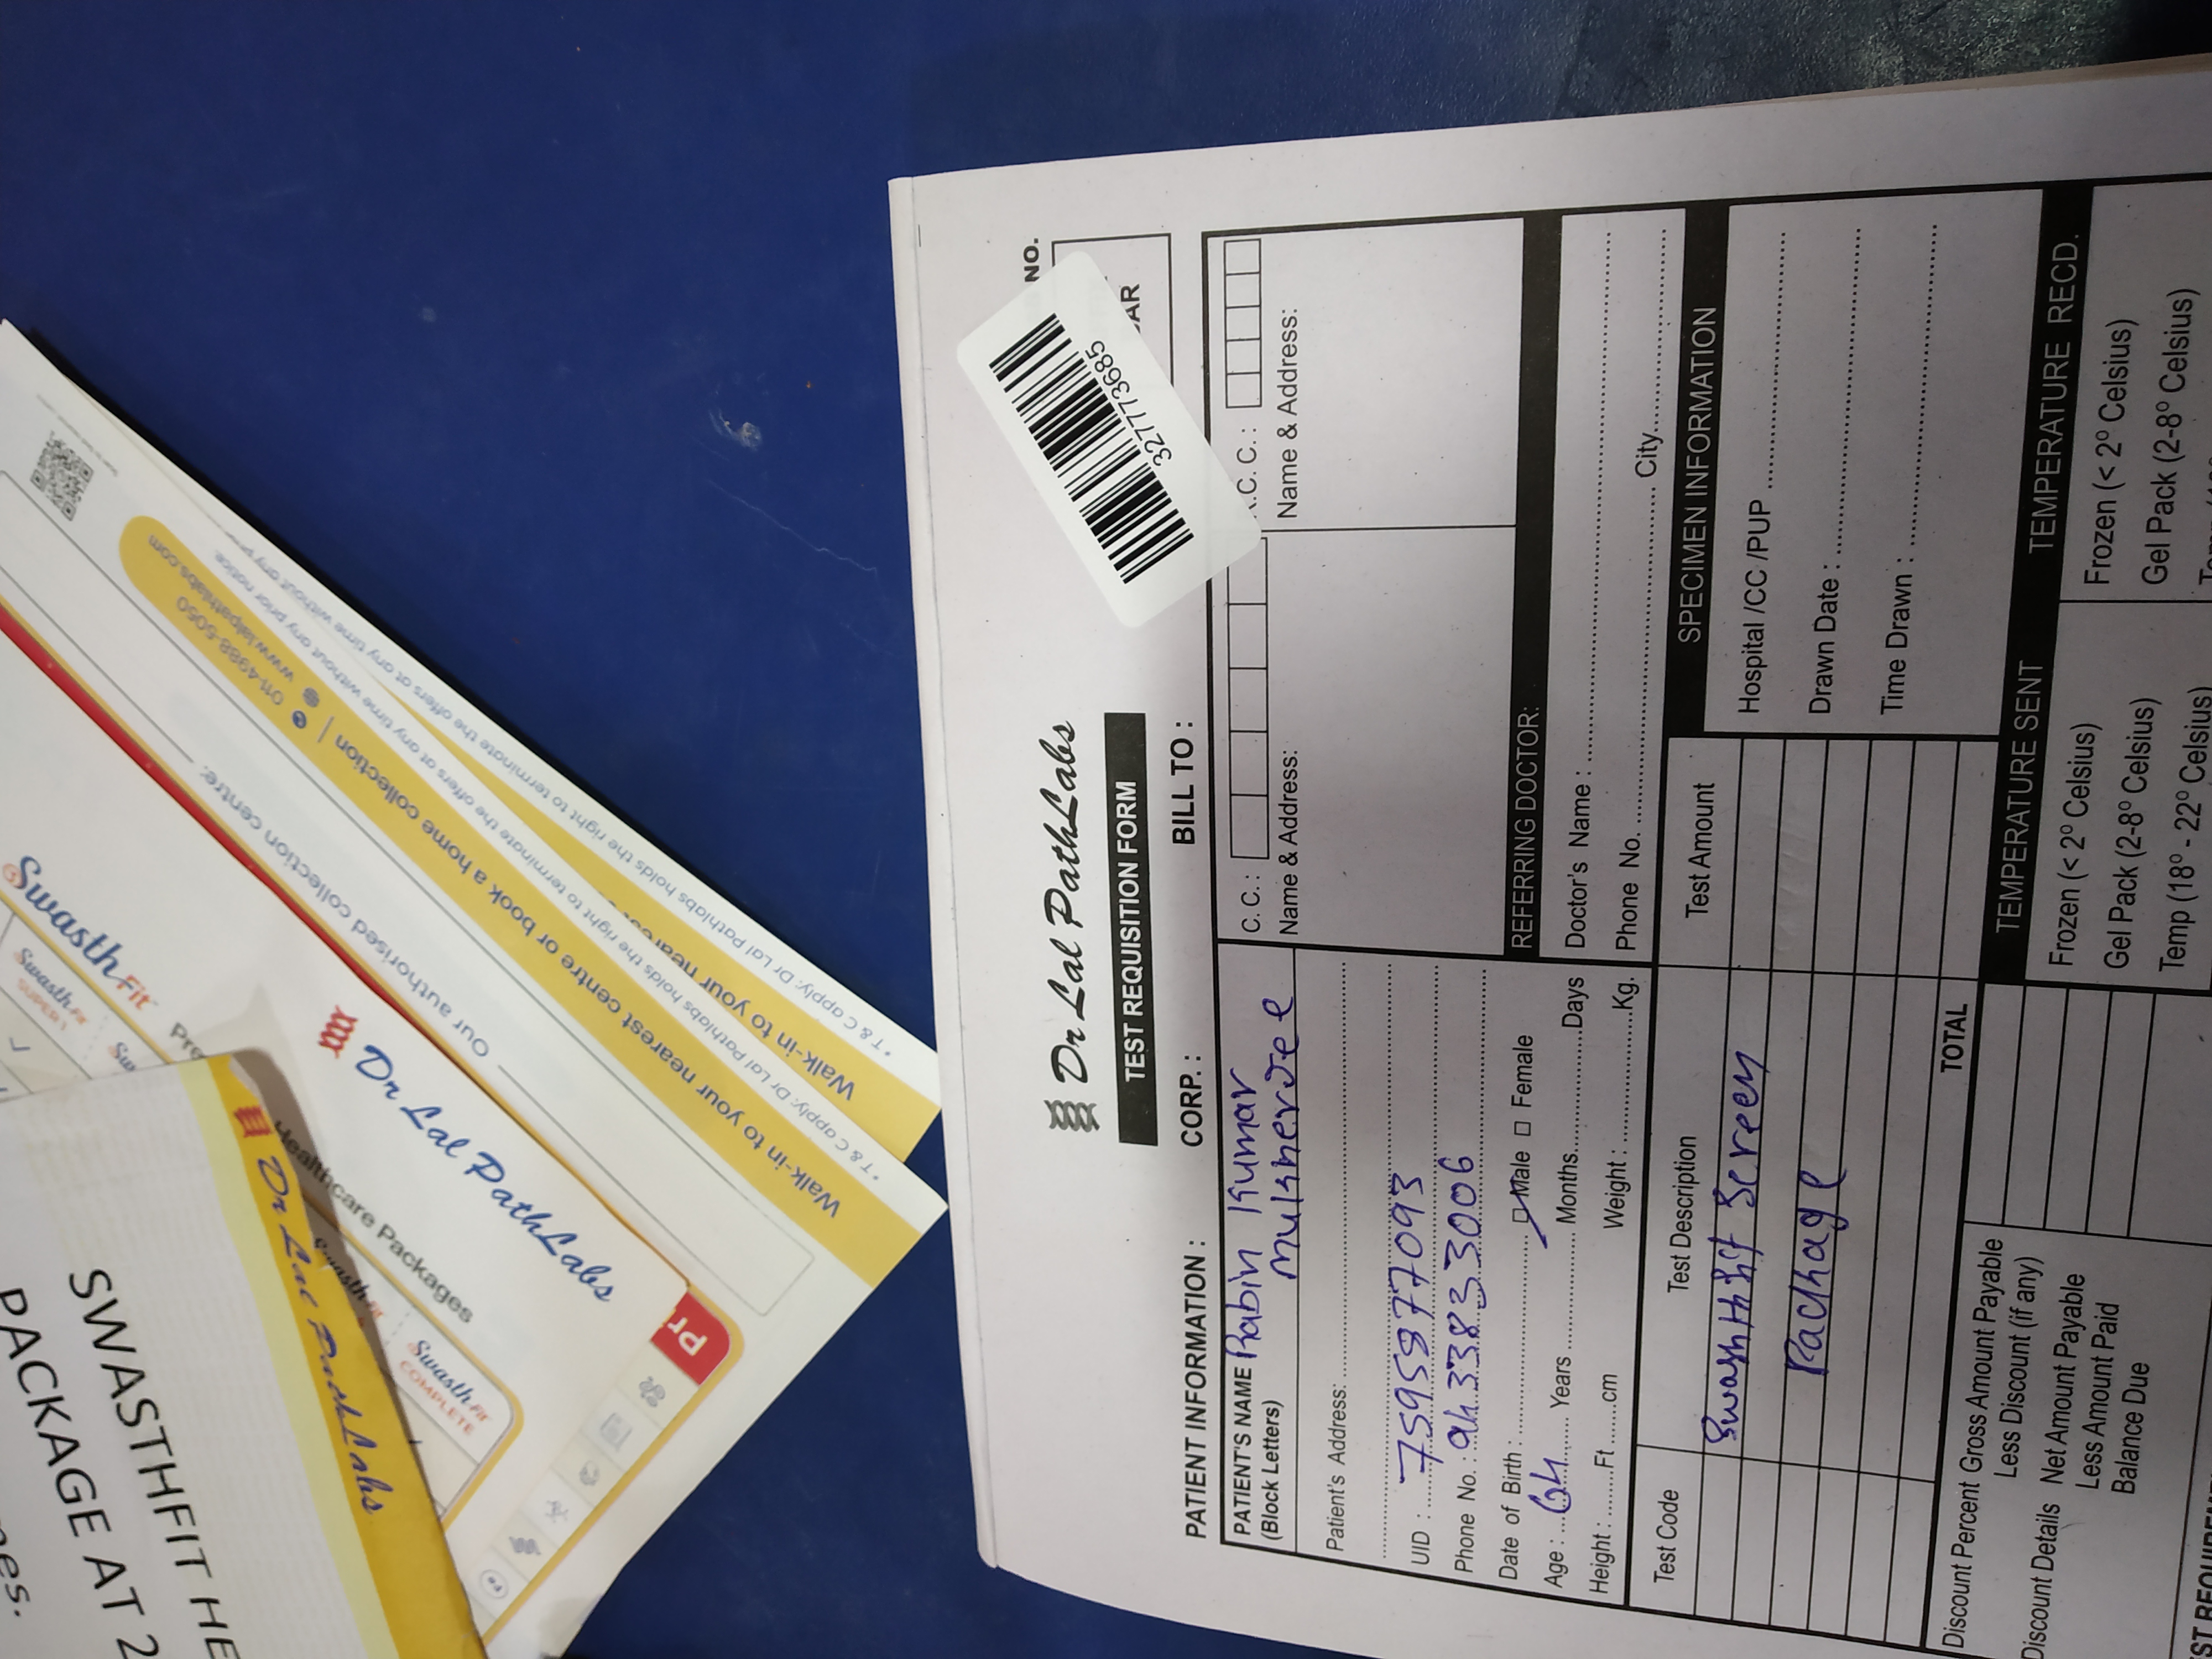 es.
PACKAGE AT 2
SWASTHFIT HE
Dr Lal PathLabs
SwasthFit
SUPER 1
SwasthFit
Sw
Pre
Healthcare Packages
SwasthFit
COMPLETE
SwasthFit
Fe
Pri
Dr Lal PathLabs
Our authorised collection centre:
Walk-in to your nearest centre or book a home collection | 011-4988-5050
www.lalpathlabs.com
*T & C apply: Dr Lal Pathlabs holds the right to terminate the offers at any time without any prior notice.
Walk-in to your nearest
*T & C apply: Dr Lal Pathlabs holds the right to terminate the offers at any time without any
Dr Lal PathLabs
TEST REQUISITION FORM
NO.
327773685
AR
PATIENT INFORMATION : CORP. : BILL TO :
PATIENT'S NAME Rabin Kumar
(Block Letters) Mukherjee
C. C. :
.C. C. :
Name & Address:
Name & Address:
Patient's Address:
UID : 7595877093
Phone No. : 9433833006
Date of Birth : Male Female
Age : 64 Years Months Days
Height : Ft cm Weight : Kg.
REFERRING DOCTOR:
Doctor's Name :
Phone No. City
Test Code Test Description Test Amount
Swashthfit Screen
Package
TOTAL
SPECIMEN INFORMATION
Hospital /CC /PUP
Drawn Date :
Time Drawn :
Discount Percent Gross Amount Payable
Less Discount (if any)
Discount Details Net Amount Payable
Less Amount Paid
Balance Due
TEMPERATURE SENT
Frozen (< 2º Celsius)
Gel Pack (2-8º Celsius)
Temp (18º - 22º Celsius)
TEMPERATURE RECD.
Frozen (< 2º Celsius)
Gel Pack (2-8º Celsius)